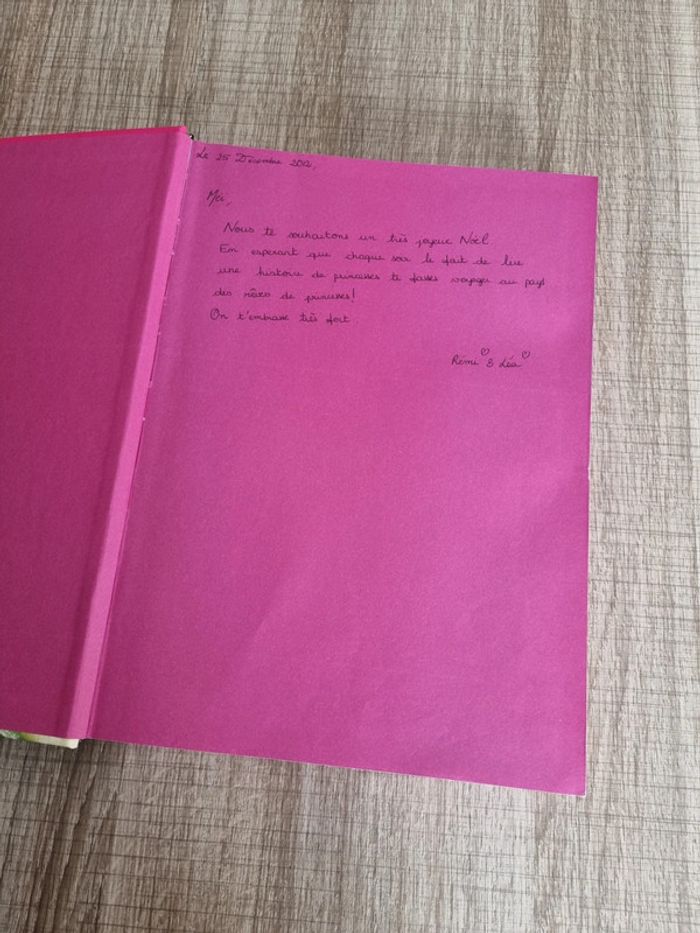 Le 25 Décembre 2012,
Nous te souhaitons un très joyeux Noël
En esperant que chaque soir le fait de lire
une histoire de princesses te fasses voyager au pays
des rêves de princesses!
On t'embrasse très fort.
Rémi & Léa